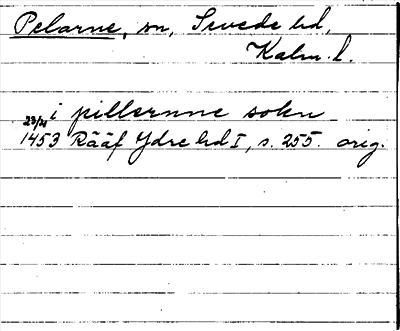 Pelarne, sn, Sevede hd,
Kalm. l.
i pillernne sokn
1453 Rääf Ydre hd I, s. 255. orig.